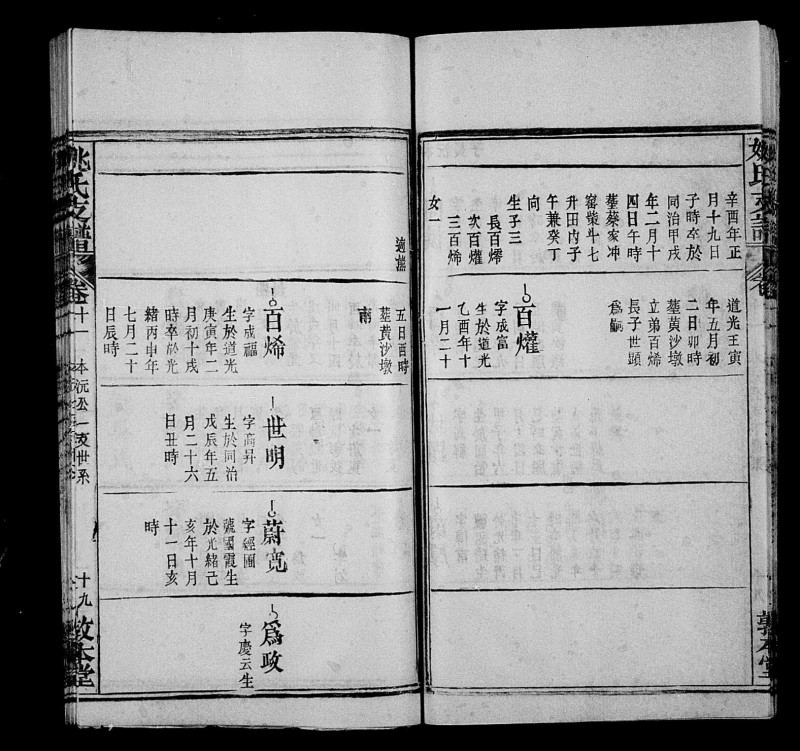 辛酉年正
月十九日
子時卒於
同治甲戌
年二月十
四日午時
塟蔡家冲
窰柴斗七
升田内子
午兼癸丁
向
生子三
長百㷸
次百㸐
三百烯
女一
道光壬寅
年五月初
二日卯時
塟黄沙墩
立弟百烯
長子世顕
爲嗣
百㸐
字成富
生於道光
乙酉年十
一月二十
適譙
五日酉時
塟黄沙墩
南
百烯
字成福
生於道光
庚寅年二
月初十戌
時卒於光
緒丙申年
七月二十
日辰時
世明
字高昇
生於同治
戊辰年五
月二十六
日丑時
蔚寛
字經圃
號國霞生
於光緒己
亥年十月
十一日亥
時
爲政
字慶云生
姚氏支譜
卷十一
本沅公一支世系
十九
敦本堂
姚氏支譜
卷
敦本堂